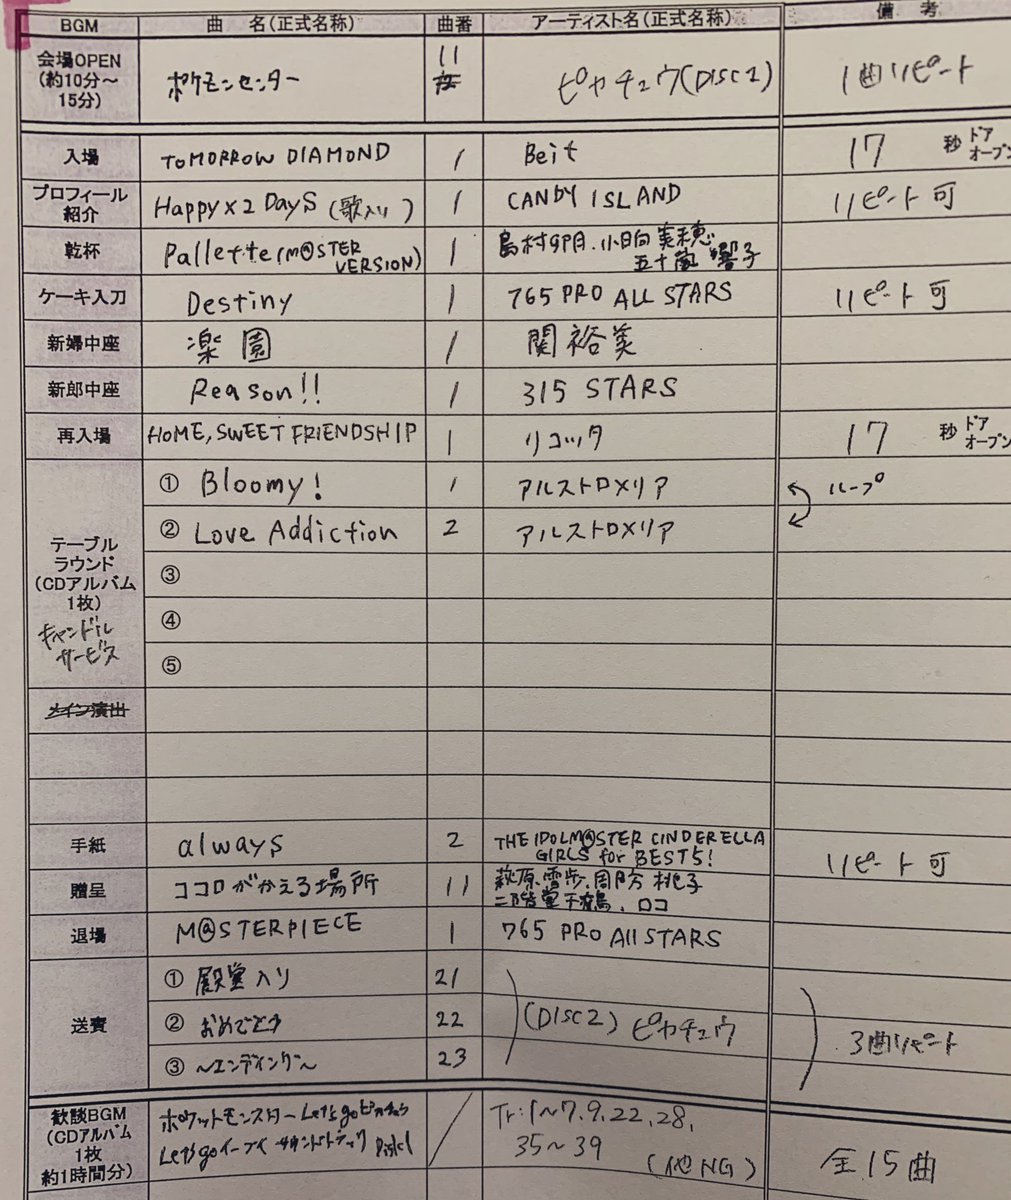 BGM 曲 名(正式名称) 曲番 アーティスト名(正式名称) 備 考
会場OPEN
(約10分～
15分)
ポケモンセンター 11 ピカチュウ(DISC2) 1曲リピート
入場 TOMORROW DIAMOND 1 Beit 17 秒 ドア
オープン
プロフィール
紹介
Happy×2 DayS (歌入り) 1 CANDY ISLAND リピート可
乾杯 Pallette (M@STER
VERSION)
1 島村卯月、小日向美穂
五十嵐響子
ケーキ入刀 Destiny 1 765 PRO ALL STARS リピート可
新婦中座 楽園 1 関裕美
新郎中座 Reason!! 1 315 STARS
再入場 HOME, SWEET FRIENDSHIP 1 リコッタ 17 秒 ドア
オープン
テーブル
ラウンド
(CDアルバム
1枚)
キャンドル
サービス
① Bloomy! 1 アルストロメリア ループ
② Love Addiction 2 アルストロメリア
③
④
⑤
メイン演出
手紙 always 2 THE IDOLM@STER CINDERELLA
GIRLS for BEST5!
リピート可
贈呈 ココロがかえる場所 11 萩原雪歩、周防桃子
二階堂千鶴、ロコ
退場 M@STERPIECE 1 765 PRO All STARS
送賓
① 殿堂入り 21
② おめでとう 22 (DISC2) ピカチュウ 3曲リピート
③ ～エンディング～ 23
歓談BGM
(CDアルバム
1枚
約1時間分)
ポケットモンスター Let's go ピカチュウ
Let's go イーブイ サウンドトラック Disk1
Tr:1～7.9.22.28.
35～39
(他NG)
全15曲